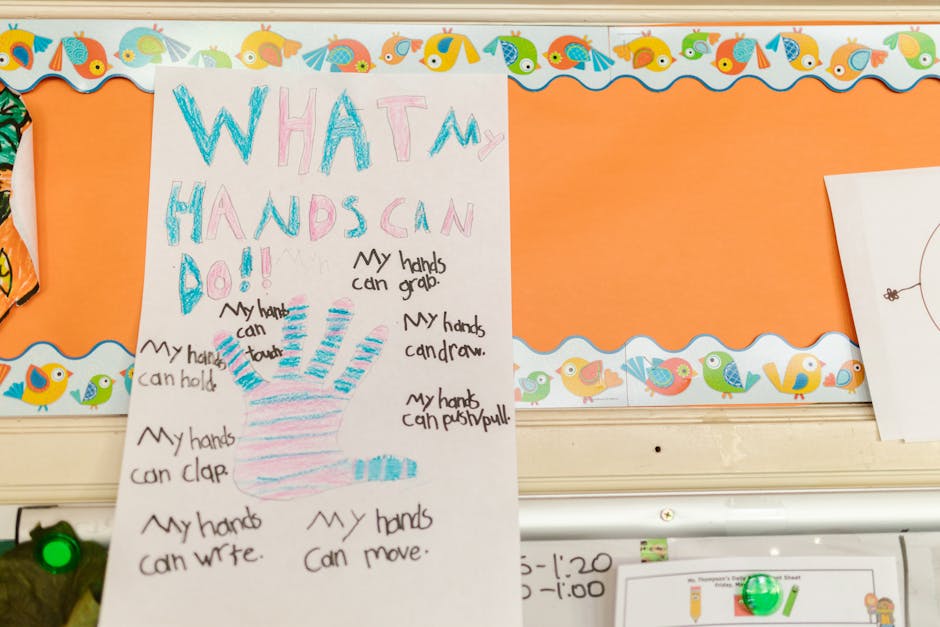 WHAT MY
HANDS CAN
DO!!
My hands
can grab.
My hands
can
touch.
My hands
can draw.
My hands
can hold.
My hands
can push/pull.
My hands
can clap.
My hands
can write.
My hands
can move.
-1:20
-1:00
Ms. Thompson's Daily Sheet
Friday,